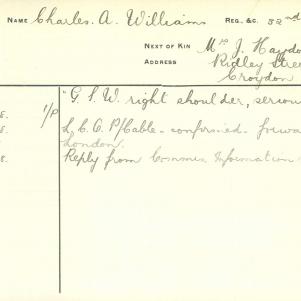 NAME Charles. A. Williams REG. &C. 52nd
NEXT OF KIN Mrs J. Haydo
ADDRESS Ridley Stree
Croydon
"G. S. W. right shoulder, seriou
8. 1/P L. C. C. P/Cable - confirmed. forwa
8. London.
8. Reply from Common Information